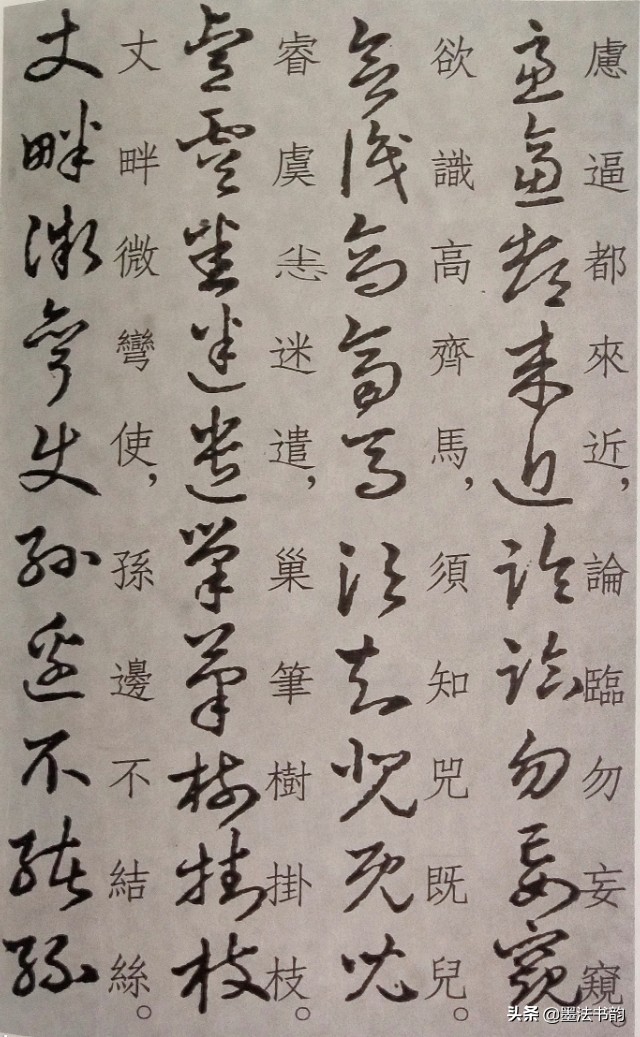 慮逼都來近，論臨勿妄窺。
欲識高齊馬，須知兕既兒。
睿虞恙迷遣，巢筆樹掛枝。
丈畔微彎使，孫邊不結絲。
头条 @墨法书韵